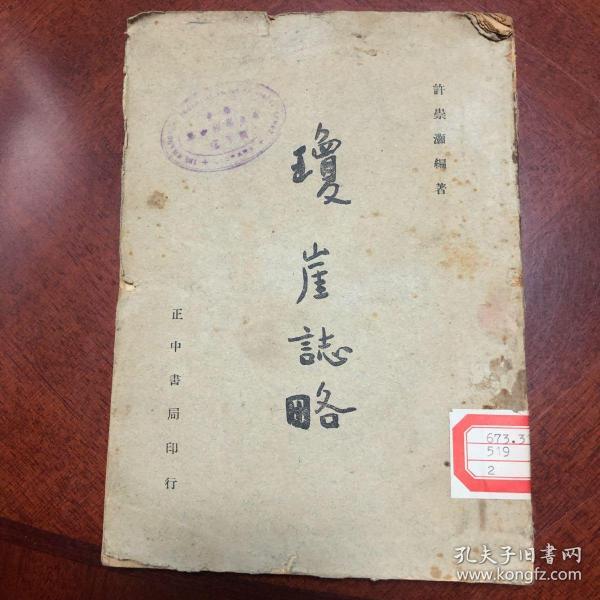 許崇灝編著
瓊崖誌略
正中書局印行
673.31
519
2
孔夫子旧书网
www.kongfz.com